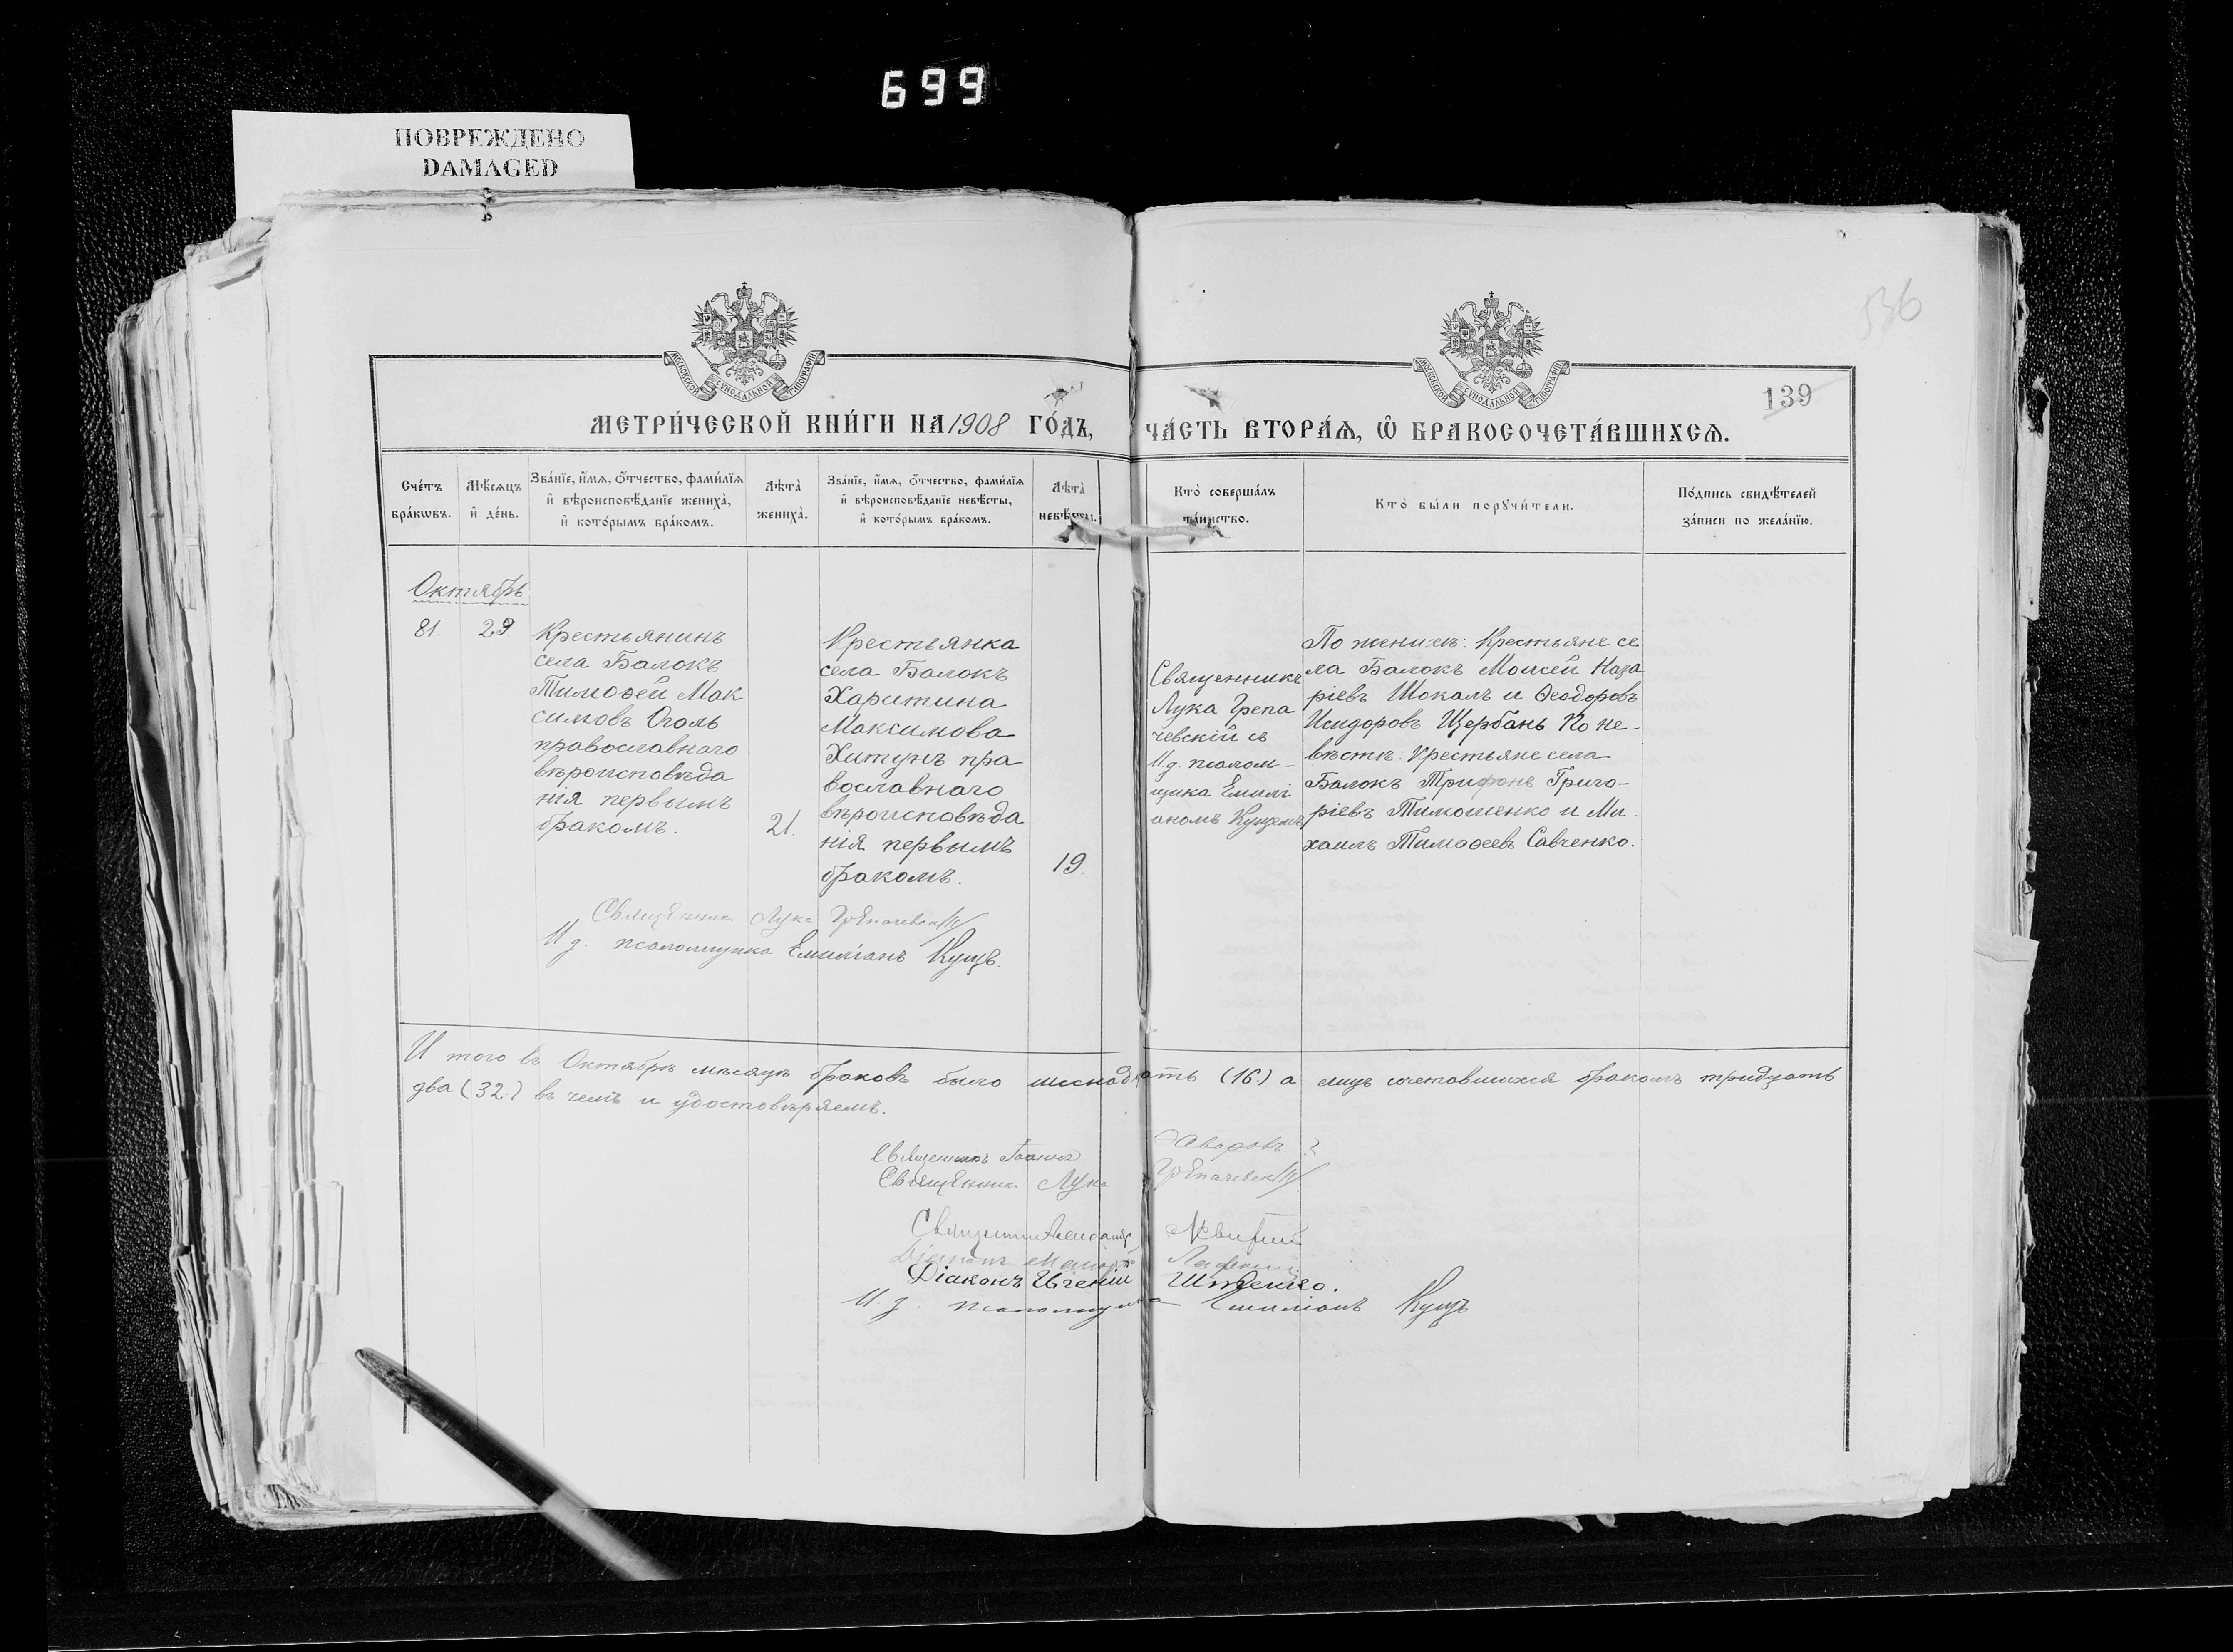 699
ПОВРЕЖДЕНО
DAMAGED
136
139
МОСКОВСКОЙ СУНОДАЛЬНОЙ ТИПОГРАФІИ
МОСКОВСКОЙ СУНОДАЛЬНОЙ ТИПОГРАФІИ
МЕТРИ́ЧЕСКОЙ КНИ́ГИ НА 1908 ГО́ДЪ, ЧА́СТЬ ВТОРА́Ѧ, Ѽ БРАКОСОЧЕТА́ВШИХСѦ.
Сче́тъ бра́кѡвъ.
Мѣ́сѧцъ и҆ де́нь.
Зва́нїе, и҆́мѧ, ѻ҆́тчество, фами́лїѧ и҆ вѣроисповѣ́данїе жениха̀, и҆ кото́рымъ бра́комъ.
Лѣта̀ жениха̀.
Зва́нїе, и҆́мѧ, ѻ҆́тчество, фами́лїѧ и҆ вѣроисповѣ́данїе невѣ́сты, и҆ кото́рымъ бра́комъ.
Лѣта̀ невѣ́сты.
Кто̀ соверша́лъ та́инство.
Кто̀ бы́ли порꙋчи́тели.
По́дпись свидѣ́телей за́писи по жела́нїю.
Октябрь
81. 29.
Крестьянинъ
села Балокъ
Тимоѳей Мак
симовъ Оголь
православнаго
вѣроисповѣда
нія первымъ
бракомъ.
21.
Крестьянка
села Балокъ
Харитина
Максимова
Хитунъ пра
вославнаго
вѣроисповѣда
нія первымъ
бракомъ.
19.
Священникъ
Лука Грепа
чевскій съ
И. д. псалом-
щика Емилі
аномъ Кущемъ
По женихѣ: Крестьяне се
ла Балокъ Моисей Наза
ріевъ Шокалъ и Ѳеодоровъ
Исидоровъ Щербань По не-
вѣстѣ: Крестьяне села
Балокъ Трифонъ Григо-
ріевъ Тимошенко и Ми-
хаилъ Тимоѳеевъ Савченко.
Священникъ Лука Грепачевскій
И. д. псаломщика Емиліанъ Кущъ.
И того въ Октябрѣ мѣсяцѣ браковъ было шеснадцать (16.) а лицъ сочетавшихся бракомъ тридцать
два (32.) въ чемъ и удостовѣряемъ.
Священникъ Іоаннъ
Священникъ Лука Грепачевскій
Священникъ Александръ
Діаконъ
Діаконъ Евгеній
И д. псаломщика Емиліанъ Кущъ